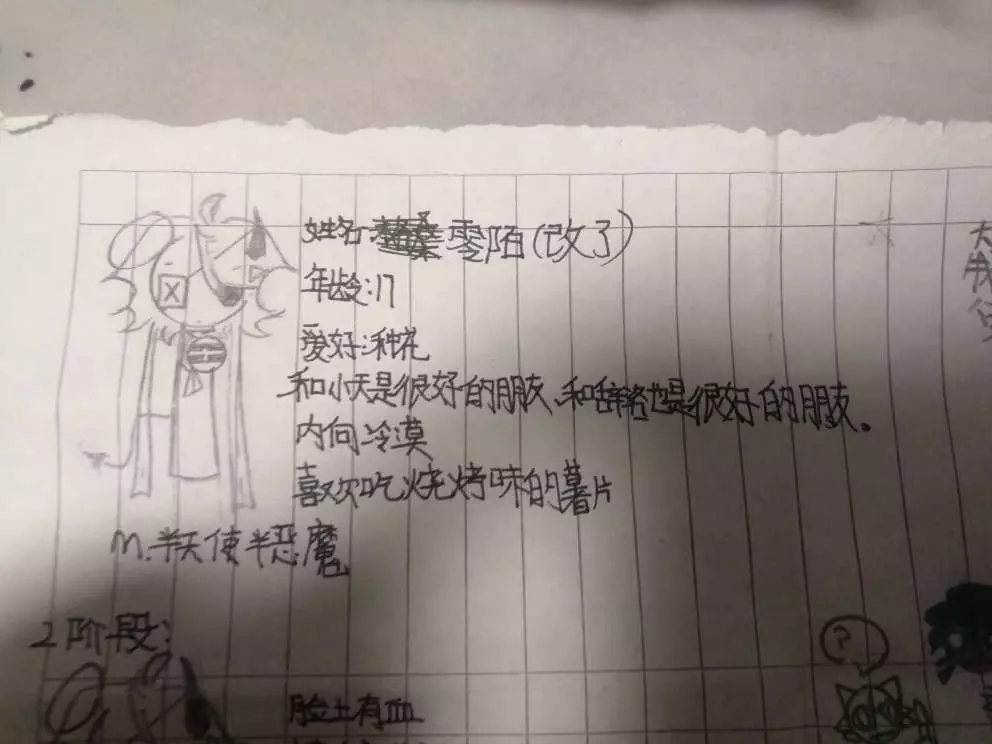 姓名:零陌(改了)
年龄:17
爱好:种花
和小天是很好的朋友、和辞铭也是很好的朋友。
内向冷漠
喜欢吃烧烤味的薯片
m.半天使半恶魔
2阶段:
?
脸上有血